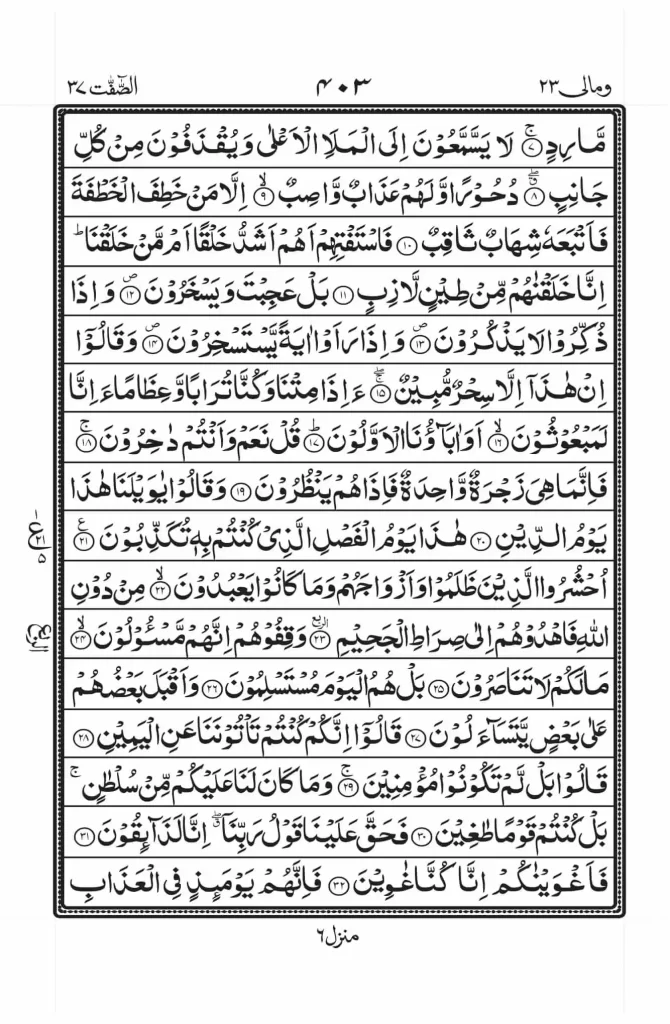 ومالی ۲۳ ۴۰۳ الصّٰٓفّٰت ۳۷
مَّارِدٍ ۚ﴿۷﴾ لَا یَسَّمَّعُوْنَ اِلَی الْمَلَاِ الْاَعْلٰی وَیُقْذَفُوْنَ مِنْ كُلِّ
جَانِبٍ ۖۗ﴿۸﴾ دُحُوْرًا وَّلَهُمْ عَذَابٌ وَّاصِبٌ ۙ﴿۹﴾ اِلَّا مَنْ خَطِفَ الْخَطْفَةَ
فَاَتْبَعَهٗ شِهَابٌ ثَاقِبٌ ﴿۱۰﴾ فَاسْتَفْتِهِمْ اَهُمْ اَشَدُّ خَلْقًا اَمْ مَّنْ خَلَقْنَا ؕ
اِنَّا خَلَقْنٰهُمْ مِّنْ طِیْنٍ لَّازِبٍ ﴿۱۱﴾ بَلْ عَجِبْتَ وَیَسْخَرُوْنَ ۪﴿۱۲﴾ وَاِذَا
ذُكِّرُوْا لَا یَذْكُرُوْنَ ۪﴿۱۳﴾ وَاِذَا رَاَوْا اٰیَةً یَّسْتَسْخِرُوْنَ ۪﴿۱۴﴾ وَقَالُوْۤا
اِنْ هٰذَاۤ اِلَّا سِحْرٌ مُّبِیْنٌ ۚۖ﴿۱۵﴾ ءَاِذَا مِتْنَا وَكُنَّا تُرَابًا وَّعِظَامًا ءَاِنَّا
لَمَبْعُوْثُوْنَ ۙ﴿۱۶﴾ اَوَاٰبَآؤُنَا الْاَوَّلُوْنَ ؕ﴿۱۷﴾ قُلْ نَعَمْ وَاَنْتُمْ دٰخِرُوْنَ ۚ﴿۱۸﴾
فَاِنَّمَا هِیَ زَجْرَةٌ وَّاحِدَةٌ فَاِذَا هُمْ یَنْظُرُوْنَ ﴿۱۹﴾ وَقَالُوْا یٰوَیْلَنَا هٰذَا
یَوْمُ الدِّیْنِ ﴿۲۰﴾ هٰذَا یَوْمُ الْفَصْلِ الَّذِیْ كُنْتُمْ بِهٖ تُكَذِّبُوْنَ ﴿۲۱﴾ ع
۲۱ ع ۵
اُحْشُرُوا الَّذِیْنَ ظَلَمُوْا وَاَزْوَاجَهُمْ وَمَا كَانُوْا یَعْبُدُوْنَ ۙ﴿۲۲﴾ مِنْ دُوْنِ
اللّٰهِ فَاهْدُوْهُمْ اِلٰی صِرَاطِ الْجَحِیْمِ ﴿۲۳﴾ الربع وَقِفُوْهُمْ اِنَّهُمْ مَّسْـُٔوْلُوْنَ ۙ﴿۲۴﴾
الربع
مَا لَكُمْ لَا تَنَاصَرُوْنَ ﴿۲۵﴾ بَلْ هُمُ الْیَوْمَ مُسْتَسْلِمُوْنَ ﴿۲۶﴾ وَاَقْبَلَ بَعْضُهُمْ
عَلٰی بَعْضٍ یَّتَسَآءَلُوْنَ ﴿۲۷﴾ قَالُوْۤا اِنَّكُمْ كُنْتُمْ تَاْتُوْنَنَا عَنِ الْیَمِیْنِ ﴿۲۸﴾
قَالُوْا بَلْ لَّمْ تَكُوْنُوْا مُؤْمِنِیْنَ ۚ﴿۲۹﴾ وَمَا كَانَ لَنَا عَلَیْكُمْ مِّنْ سُلْطٰنٍ ۚ
بَلْ كُنْتُمْ قَوْمًا طٰغِیْنَ ﴿۳۰﴾ فَحَقَّ عَلَیْنَا قَوْلُ رَبِّنَاۤ ۖۗ اِنَّا لَذَآئِقُوْنَ ﴿۳۱﴾
فَاَغْوَیْنٰكُمْ اِنَّا كُنَّا غٰوِیْنَ ﴿۳۲﴾ فَاِنَّهُمْ یَوْمَئِذٍ فِی الْعَذَابِ
منزل ۶